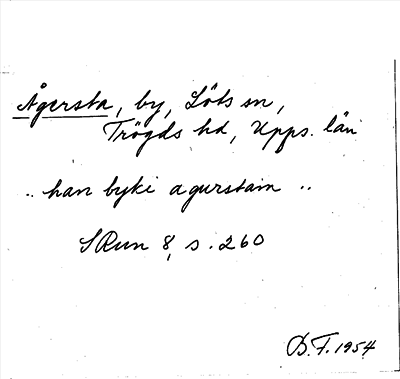 Ågersta, by, Löts sn,
Trögds hd, Upps. län
.. han byki agurstam ..
SRun 8, s. 260
B.F. 1954